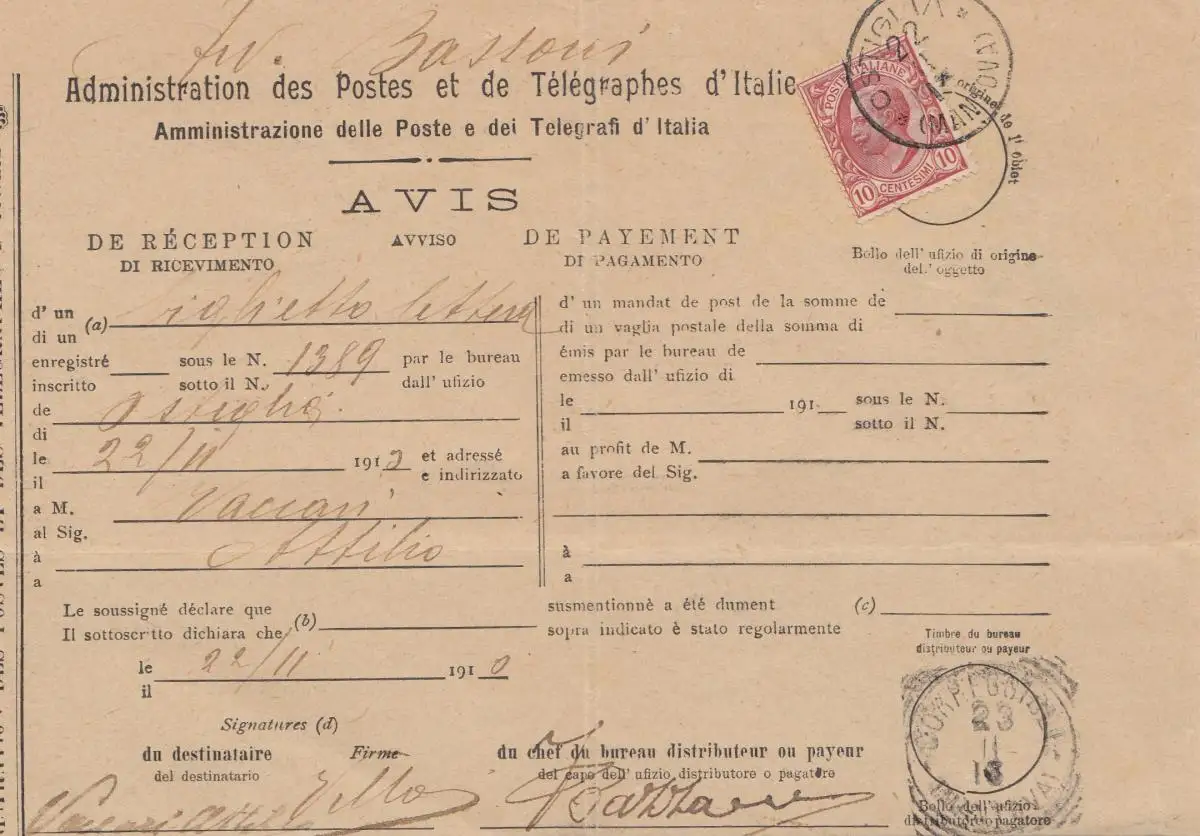 Bassoni
Administration des Postes et de Télégraphes d'Italie
Amministrazione delle Poste e dei Telegrafi d'Italia
AVIS
DE RÉCEPTION AVVISO DE PAYEMENT
DI RICEVIMENTO DI PAGAMENTO
POSTE ITALIANE
10 CENTESIMI 10
OSTIGLIA * (MANTOVA) *
22
origine
de 1ª oblet
Bollo dell' ufizio di origine
del.' oggetto
d' un
di un (a) Biglietto lettera
enregistré sous le N. 1389 par le bureau
inscritto sotto il N. dall' ufizio
de Ostiglia
di
le 22/11 191 et adressé
il e indirizzato
a M. Vaccari
al Sig.
à Attilio
a
d' un mandat de post de la somme de
di un vaglia postale della somma di
émis par le bureau de
emesso dall' ufizio di
le 191 sous le N.
il sotto il N.
au profit de M.
a favore del Sig.
à
a
Le soussigné déclare que (b) susmentionnè a été dument (c)
Il sottoscritto dichiara che sopra indicato è stato regolarmente
le 22/11 191
il
Timbre du bureau
distributeur ou payeur
23
11
13
Signatures (d)
du destinataire Firme du chef du bureau distributeur ou payeur
del destinatario del capo dell' ufizio distributore o pagatore
Bollo dell' ufizio
distributore o pagatore